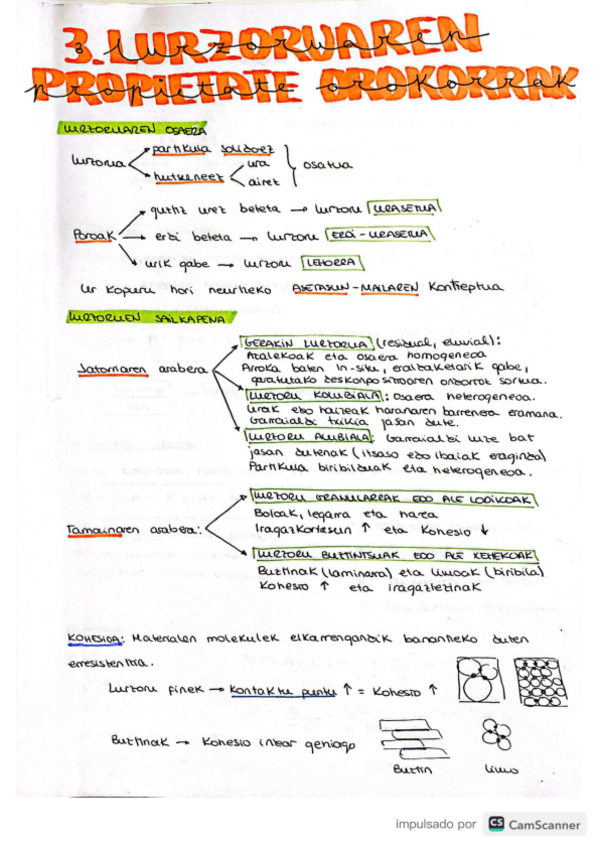 3. LURZORUAREN
PROPIETATE OROKORRAK
LURZORUAREN OSAERA
lurzorua
partikula solidoez
hutsuneez
ura
airez
osatua
Poroak
guthz urez beteta → lurzoru URASETUA
erdi beteta → lurzoru ERDI-URASETUA
urik gabe → lurzoru LEHORRA
Ur kopuru hori neurtzeko ASETASUN-MAILAREN kontzeptua
LURZORUEN SAILKAPENA
Jatorriaren arabera
GERAKIN LURZORUA (residual, eluvial):
Azalekoak eta osaera homogeneoa
Arroka baten in-situ, eraldaketarik gabe,
garatutako deskonposizioaren ondorioz sortua.
LURZORU KOLUBIALA: Osaera heterogeneoa.
Urak edo haizeak haranaren barrenera eramana.
Garraialdi txikia jasan dute.
LURZORU ALUBIALA: Garraialdi luze bat
jasan dutenak (itsaso edo ibaiak eraginda)
Partikula biribilduak eta heterogeneoa.
Tamainaren arabera:
LURZORU GRANULARRAK EDO ALE LODIKOAK
Boloak, legarra eta harea
Iragazkortasun ↑ eta Kohesio ↓
LURZORU BUZTINTSUAK EDO ALE XEHEKOAK
Buztinak (laminara) eta limoak (biribila)
Kohesio ↑ eta iragaztezinak
KOHESIOA: Materialen molekulek elkarrengandik banantzeko duten
erresistentzia.
Lurzoru finek → kontaktu puntu ↑ = Kohesio ↑
Buztinak → Kohesio indar gehiago
Buztin
Limo
impulsado por CS CamScanner